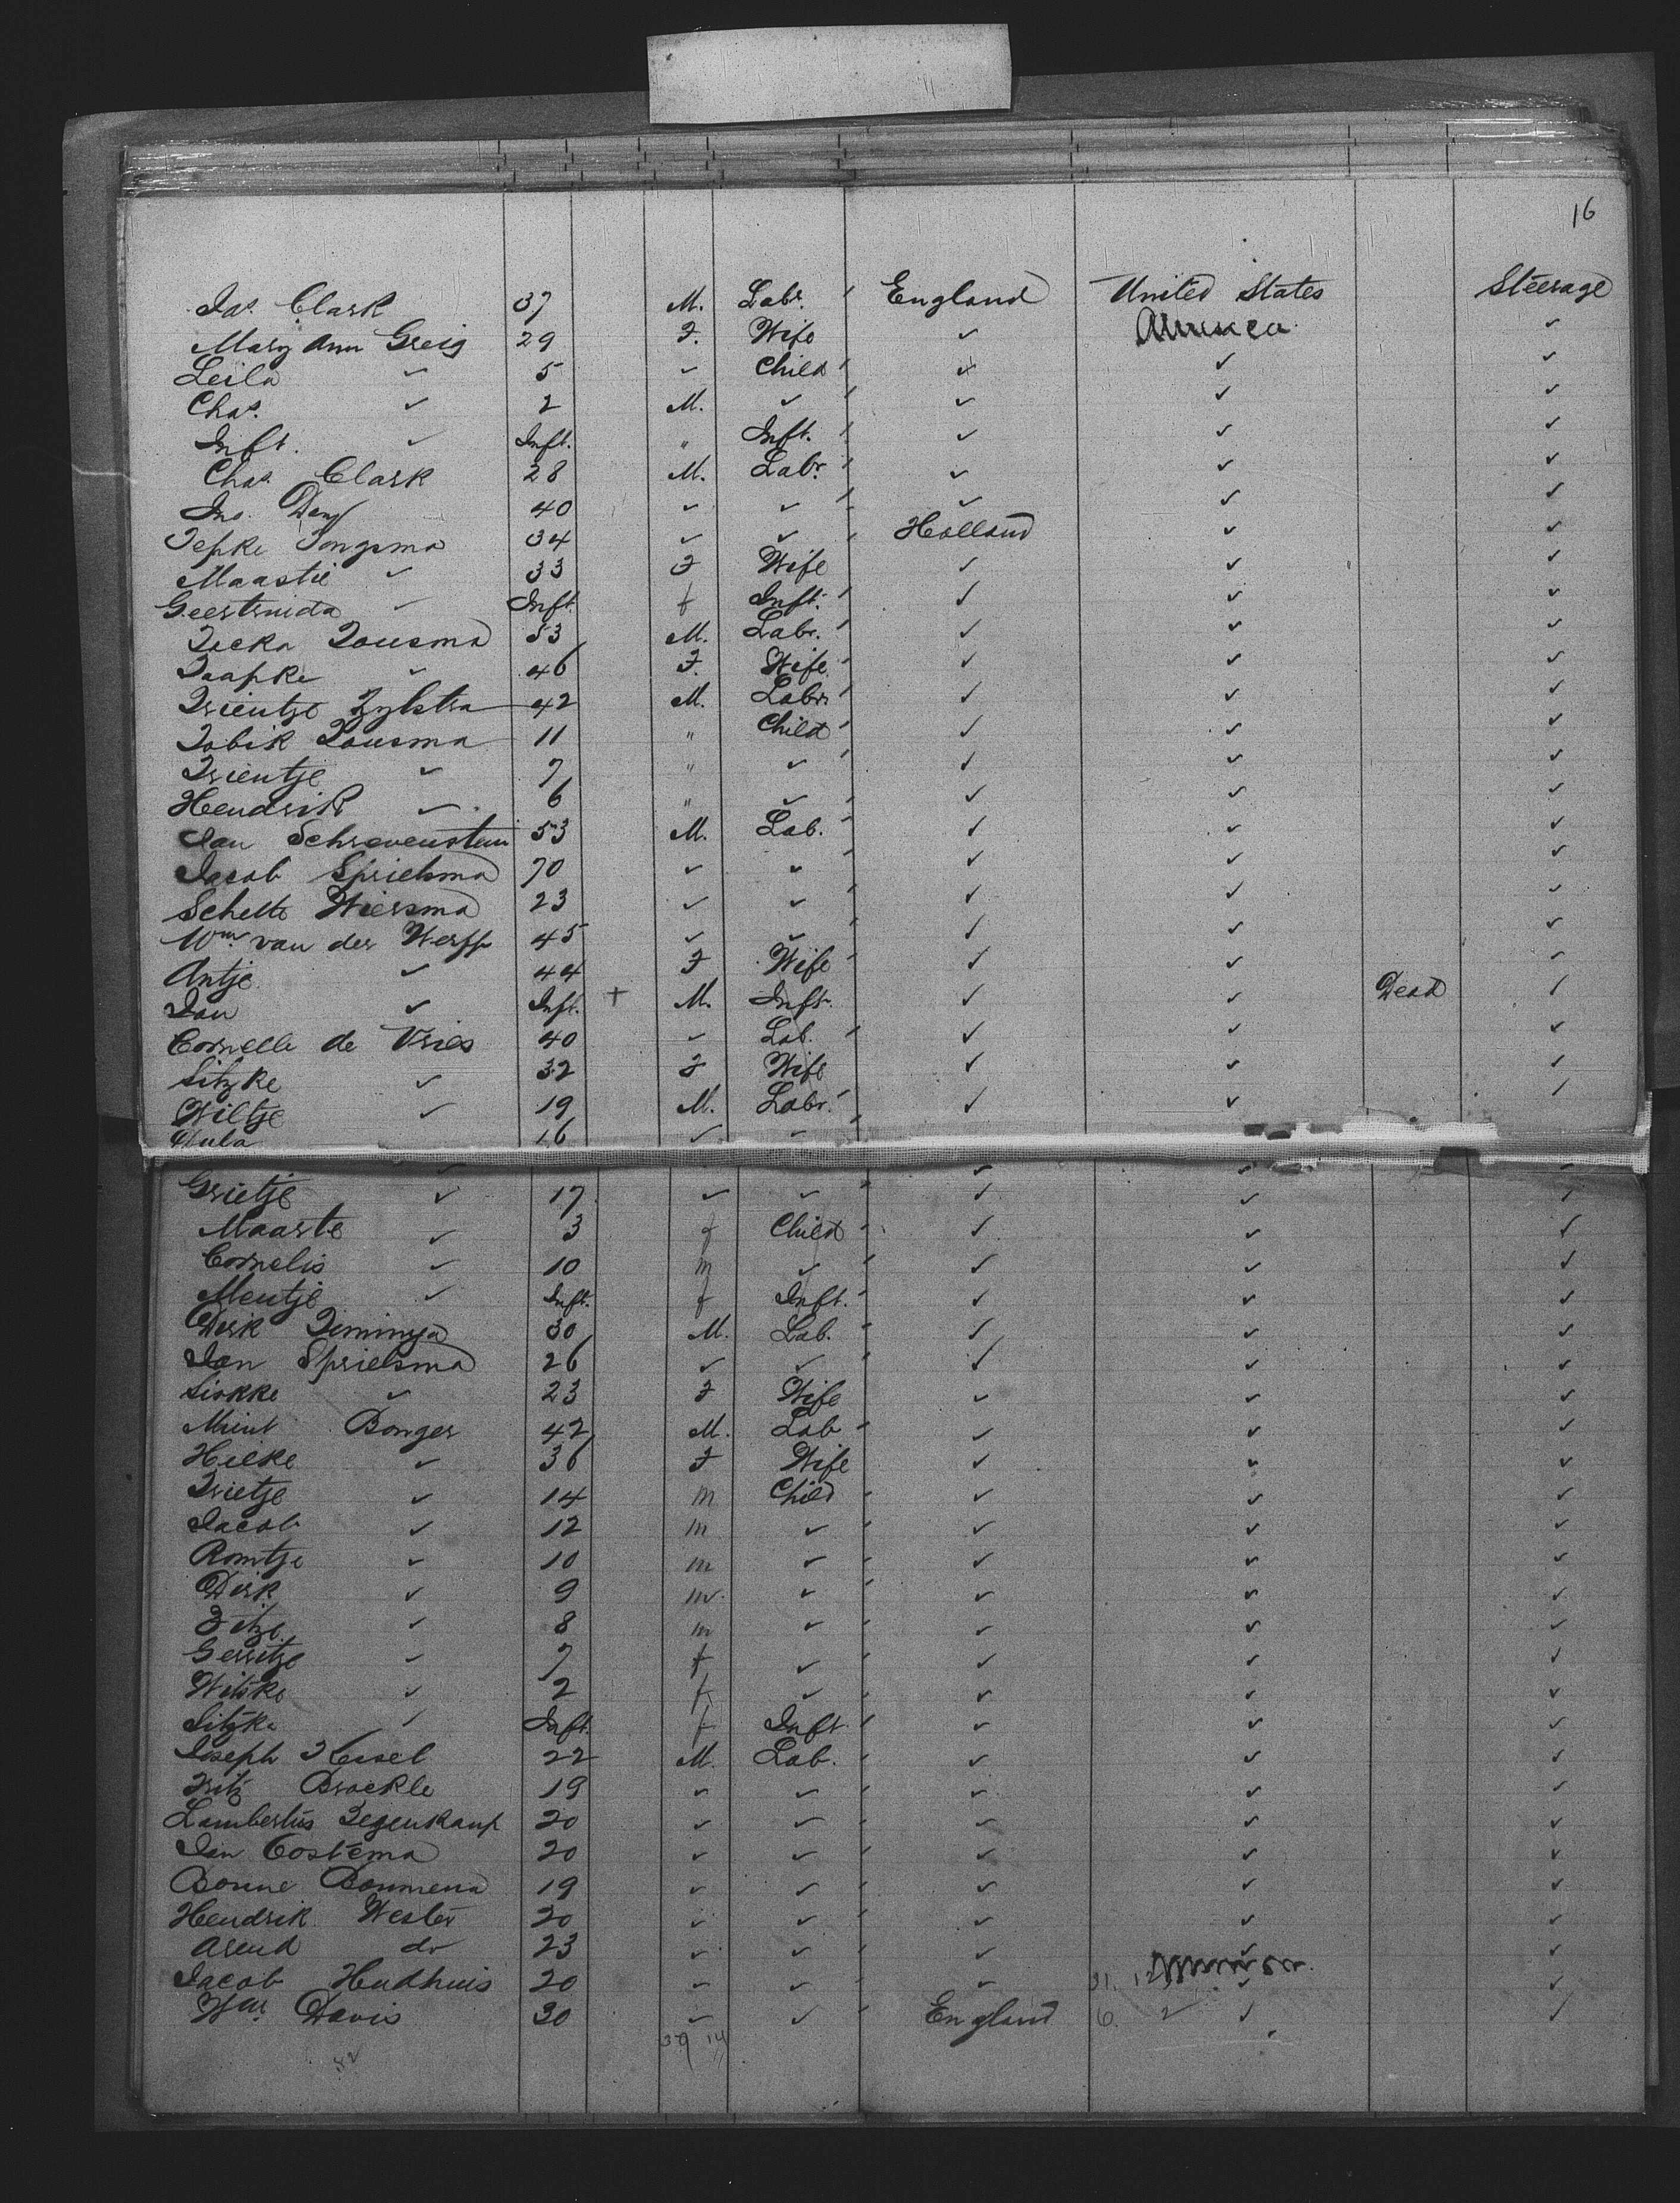 16
Jas. Clark 37 M. Labr. England United States Steerage
Mary Ann Greig 29 F. Wife ✓ America ✓
Leila ✓ 5 ✓ Child ✓ ✓ ✓
Chas. ✓ 2 M. ✓ ✓ ✓ ✓
Inft. ✓ Inft. " Inft. ✓ ✓ ✓
Chas. Clark 28 M. Labr. ✓ ✓ ✓
Jno. 40 ✓ ✓ ✓ ✓ ✓
Tepke Jongsma 34 ✓ ✓ Holland ✓ ✓
Maastie ✓ 33 F Wife ✓ ✓ ✓
Geertruida ✓ Inft. f Inft. ✓ ✓ ✓
Zousma 53 M. Labr. ✓ ✓ ✓
Taapke ✓ 46 F. Wife ✓ ✓ ✓
Trientje Zylstra 42 M. Labr. ✓ ✓ ✓
Tobik Zousma 11 " Child ✓ ✓ ✓
Trientje ✓ 7 " ✓ ✓ ✓ ✓
Hendrik ✓ 6 " ✓ ✓ ✓ ✓
Jan Schrevenstein 53 M. Lab. ✓ ✓ ✓
Jacob Sprielsma 70 ✓ ✓ ✓ ✓ ✓
Schelte Wiersma 23 ✓ ✓ ✓ ✓ ✓
Wm. van der Werff 45 ✓ ✓ ✓ ✓ ✓
Antje ✓ 44 F Wife ✓ ✓ ✓
Jan ✓ Inft. + M. Inft. ✓ ✓ Dead ✓
Cornelle de Vries 40 ✓ Lab. ✓ ✓ ✓
Sitzke ✓ 32 F Wife ✓ ✓ ✓
Wiltje ✓ 19 M. Labr. ✓ ✓ ✓
16 ✓ ✓
Grietje ✓ 17 ✓ ✓ ✓ ✓ ✓
Maarte ✓ 3 f Child ✓ ✓ ✓
Cornelis ✓ 10 m ✓ ✓ ✓ ✓
Mentje ✓ Inft. f Inft. ✓ ✓ ✓
Dirk Timinga 30 M. Lab. ✓ ✓ ✓
Jan Sprielsma 26 ✓ ✓ ✓ ✓ ✓
Siokke ✓ 23 F Wife ✓ ✓ ✓
Mient Bonger 42 M. Lab ✓ ✓ ✓
Hielke ✓ 36 F Wife ✓ ✓ ✓
Trietje ✓ 14 m Child ✓ ✓ ✓
Jacob ✓ 12 m ✓ ✓ ✓ ✓
Romtje ✓ 10 m ✓ ✓ ✓ ✓
Dirk ✓ 9 m ✓ ✓ ✓ ✓
✓ 8 m ✓ ✓ ✓ ✓
Gerritje ✓ 7 f ✓ ✓ ✓ ✓
Witske ✓ 2 f ✓ ✓ ✓ ✓
Sitzke ✓ Inft. f Inft ✓ ✓ ✓
Joseph Kessel 22 M. Lab. ✓ ✓ ✓
Fritz Brockle 19 ✓ ✓ ✓ ✓ ✓
Lambertus Zegenkamp 20 ✓ ✓ ✓ ✓ ✓
Jan Costema 20 ✓ ✓ ✓ ✓ ✓
Bonne Boumena 19 ✓ ✓ ✓ ✓ ✓
Hendrik Wester 20 ✓ ✓ ✓ ✓ ✓
Arend do 23 ✓ ✓ ✓ ✓ ✓
Jacob Hudhuis 20 ✓ ✓ ✓ ✓ ✓
Wm. Davis 30 ✓ ✓ England 6. 2 ✓ ✓
52 39 14